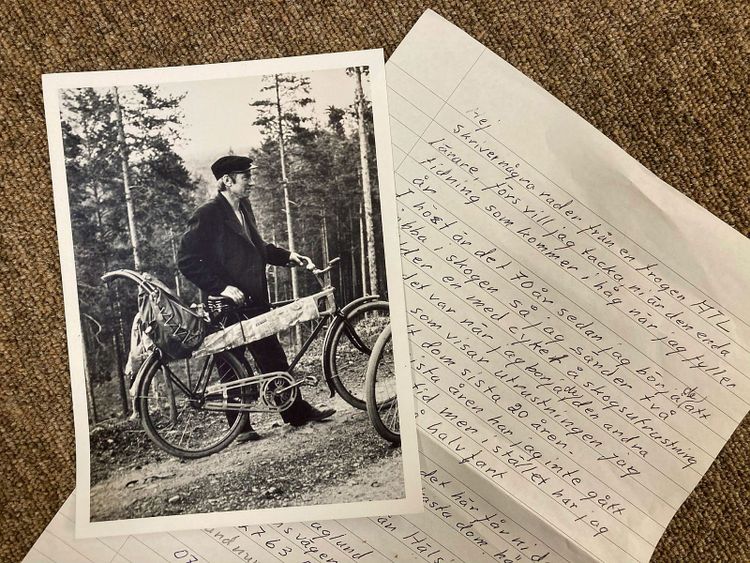 Hej
Skriver några rader från en trogen HTL
läsare, förs vill jag tacka ni är den enda
tidning som kommer i håg när jag fyller
år
I höst är det 70 år sedan jag börja att
bba i skogen så jag sänder två
lder en med cykel å skogsutrustning
det var när jag börja den andra
som visar utrustningen jag
dom sista 20 åren.
åren har jag inte gått
tid men i stället har jag
å halvfart
det här får ni d
dom
ån Häls
aglund
svägen
4763
07